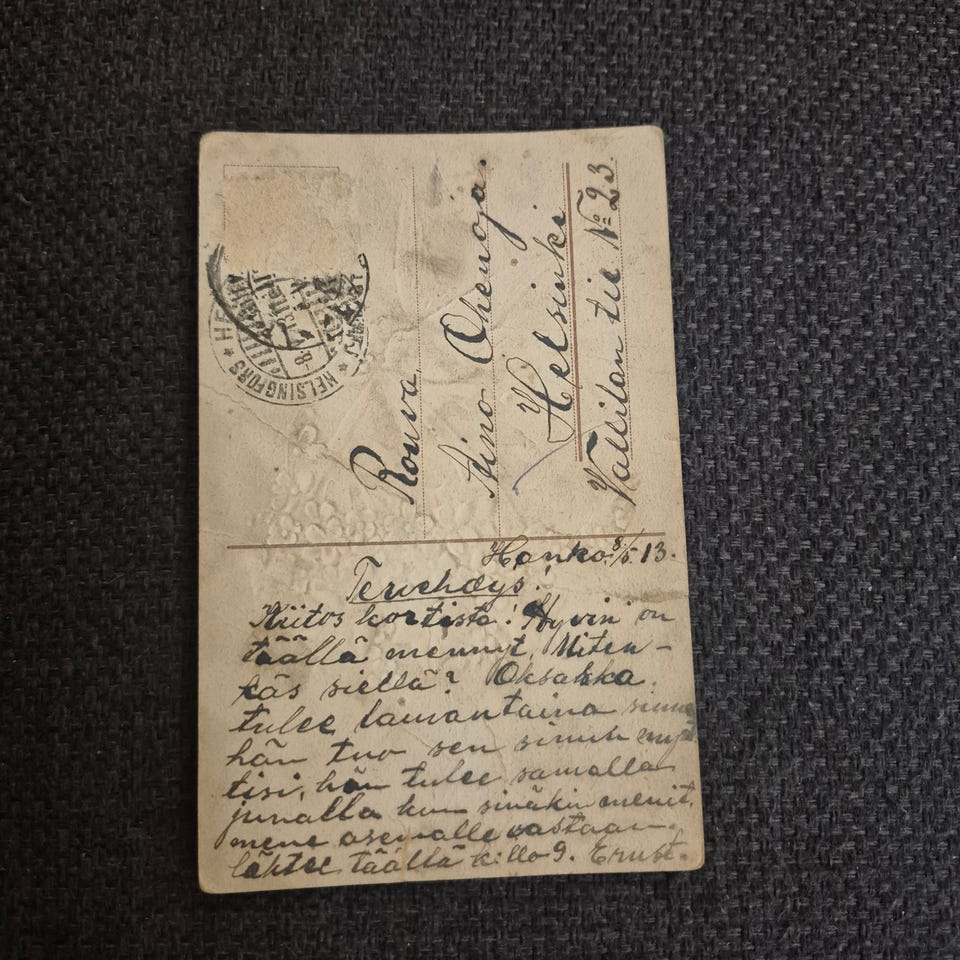 HELSINGFORS
Rouva
Aino Ohenoja.
Helsinki
Vallilan tie № 23.
Hanko 8/5 13.
Tervehdys.
Kiitos kortista! Hyvin on
täällä mennyt, Miten-
käs siellä? Oksakka
tulee lauvantaina sinne
hän tuo sen sinun
tisi, hän tulee samalla
junalla kun sinäkin menit,
mene asemalle vastaan
lähtee täältä k:llo 9. Ernst.